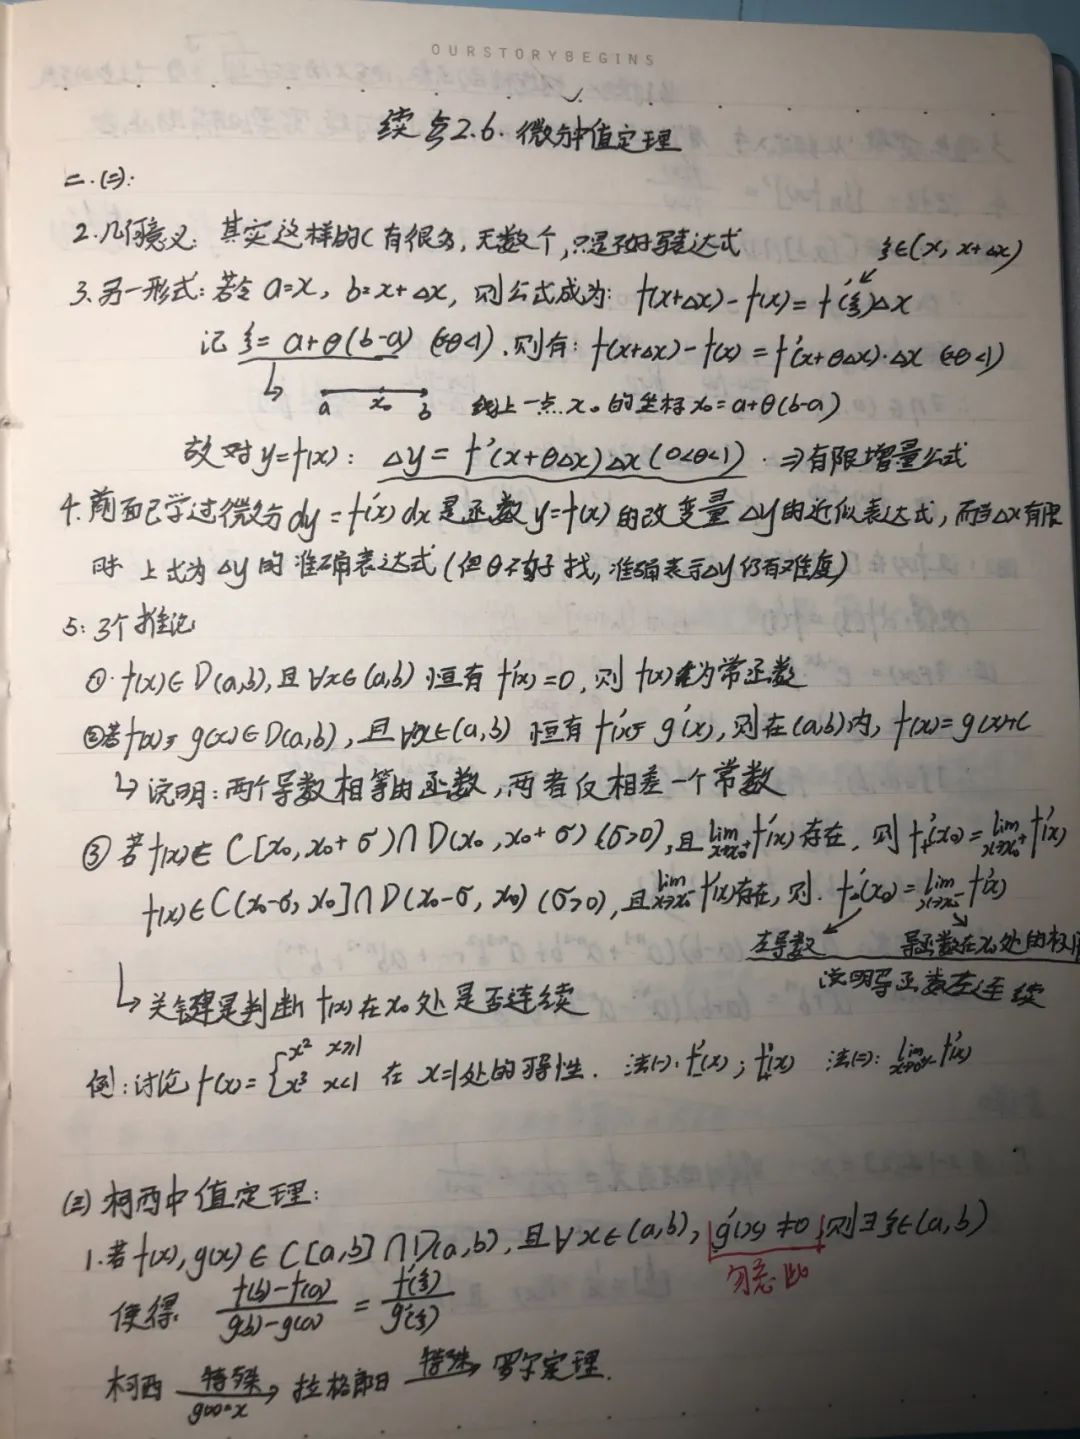 OURSTORYBEGINS
续与2.6.微分中值定理
二.(二):
2.几何意义: 其实这样的C有很多,无数个,只是不好写表达式 ξ∈(x, x+Δx)
3.另一形式:若令 a=x, b=x+Δx, 则公式成为: f(x+Δx)-f(x)=f'(ξ)Δx
记 ξ=a+θ(b-a) (0<θ<1).则有: f(x+Δx)-f(x)=f'(x+θΔx)·Δx (0<θ<1)
↳ a x₀ b 线上一点x₀的坐标x₀=a+θ(b-a)
故对y=f(x): Δy=f'(x+θΔx)Δx(0<θ<1). ⇒有限增量公式
4.前面已学过微分dy=f'(x)dx是函数y=f(x)的改变量Δy的近似表达式,而当Δx有限
时 上式为Δy的准确表达式(但θ不好找,准确表示Δy仍有难度)
5: 3个推论
①.f(x)∈D(a,b),且∀x∈(a,b)恒有f'(x)=0,则f(x)为常函数
②若f(x)与g(x)∈D(a,b),且∀x∈(a,b)恒有f'(x)=g'(x),则在(a,b)内,f(x)=g(x)+C
↳说明:两个导数相等的函数,两者仅相差一个常数
③若f(x)∈C[x₀,x₀+σ)∩D(x₀,x₀+σ)(σ>0),且lim x→x₀⁺ f'(x)存在, 则f₊'(x₀)=lim x→x₀⁺ f'(x)
f(x)∈C(x₀-σ,x₀]∩D(x₀-σ,x₀)(σ>0),且lim x→x₀⁻ f'(x)存在,则.f₋'(x₀)=lim x→x₀⁻ f'(x)
左导数 导函数在x₀处的极
说明导函数左连续
↳关键是判断f(x)在x₀处是否连续
例:讨论f(x)={x² x≥1 x³ x<1 在x=1处的可导性. 法(一).f₋'(x);f₊'(x) 法(二): lim f'(x)
(三)柯西中值定理:
1.若f(x),g(x)∈C[a,b]∩D(a,b),且∀x∈(a,b),g'(x)≠0,则∃ξ∈(a,b)
勿忘此
使得. (f(b)-f(a))/(g(b)-g(a)) = f'(ξ)/g'(ξ)
柯西 特殊 g(x)=x → 拉格朗日 特殊→ 罗尔定理.